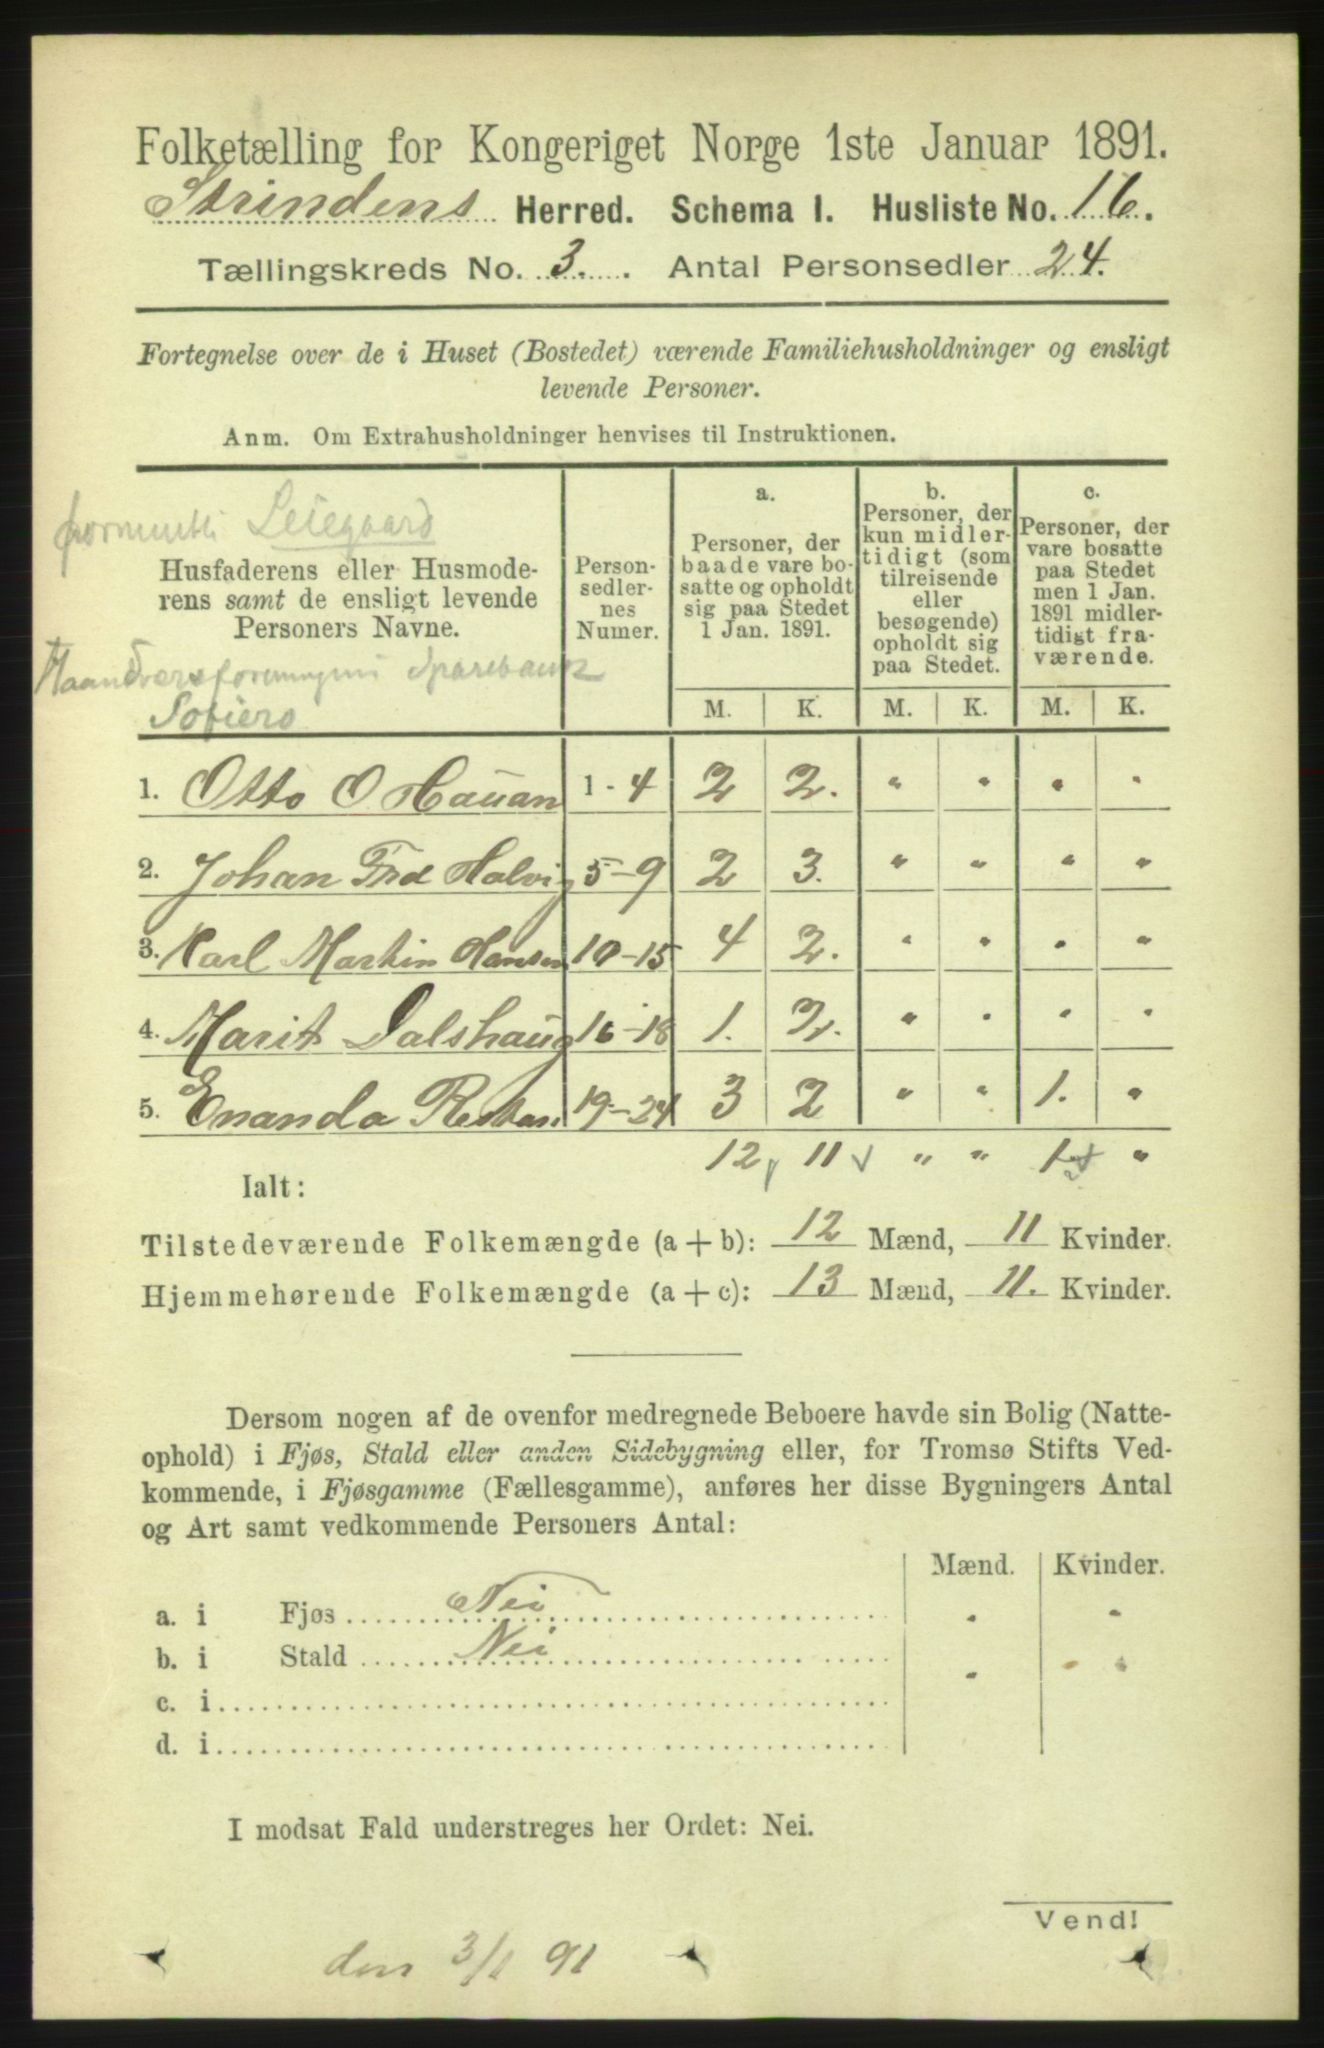 Folketælling for Kongeriget Norge 1ste Januar 1891.
Strindens Herred. Schema I. Husliste No. 16.
Tællingskreds No. 3. Antal Personsedler 24.
Fortegnelse over de i Huset (Bostedet) værende Familiehusholdninger og ensligt
levende Personer.
Anm. Om Extrahusholdninger henvises til Instruktionen.
Leiegaard
Husfaderens eller Husmode-
rens samt de ensligt levende
Personers Navne.
Haandverksforeningens Sparebank
Sofiero
Person-
sedler-
nes
Numer.
a.
Personer, der
baade vare bo-
satte og opholdt
sig paa Stedet
1 Jan. 1891.
b.
Personer, der
kun midler-
tidigt (som
tilreisende
eller
besøgende)
opholdt sig
paa Stedet.
c.
Personer, der
vare bosatte
paa Stedet
men 1 Jan.
1891 midler-
tidigt fra-
værende.
M. K. M. K. M. K.
1. Otto O Hauan 1-4 2 2. " " " "
2. Johan Fred Halvig 5-9 2 3. " " " "
3. Karl Martin Hansen 10-15 4 2. " " " "
4. Marit Dalshaug 16-18 1. 2. " " " "
5. Enanda 19-24 3 2 " " 1. "
12 11 " " 1 "
Ialt:
Tilstedeværende Folkemængde (a + b): 12 Mænd, 11 Kvinder.
Hjemmehørende Folkemængde (a + c): 13 Mænd, 11. Kvinder.
Dersom nogen af de ovenfor medregnede Beboere havde sin Bolig (Natte-
ophold) i Fjøs, Stald eller anden Sidebygning eller, for Tromsø Stifts Ved-
kommende, i Fjøsgamme (Fællesgamme), anføres her disse Bygningers Antal
og Art samt vedkommende Personers Antal:
Mænd. Kvinder.
a. i Fjøs Nei " "
b. i Stald Nei " "
c. i
d. i
I modsat Fald understreges her Ordet: Nei.
Vend!
den 3/1 91